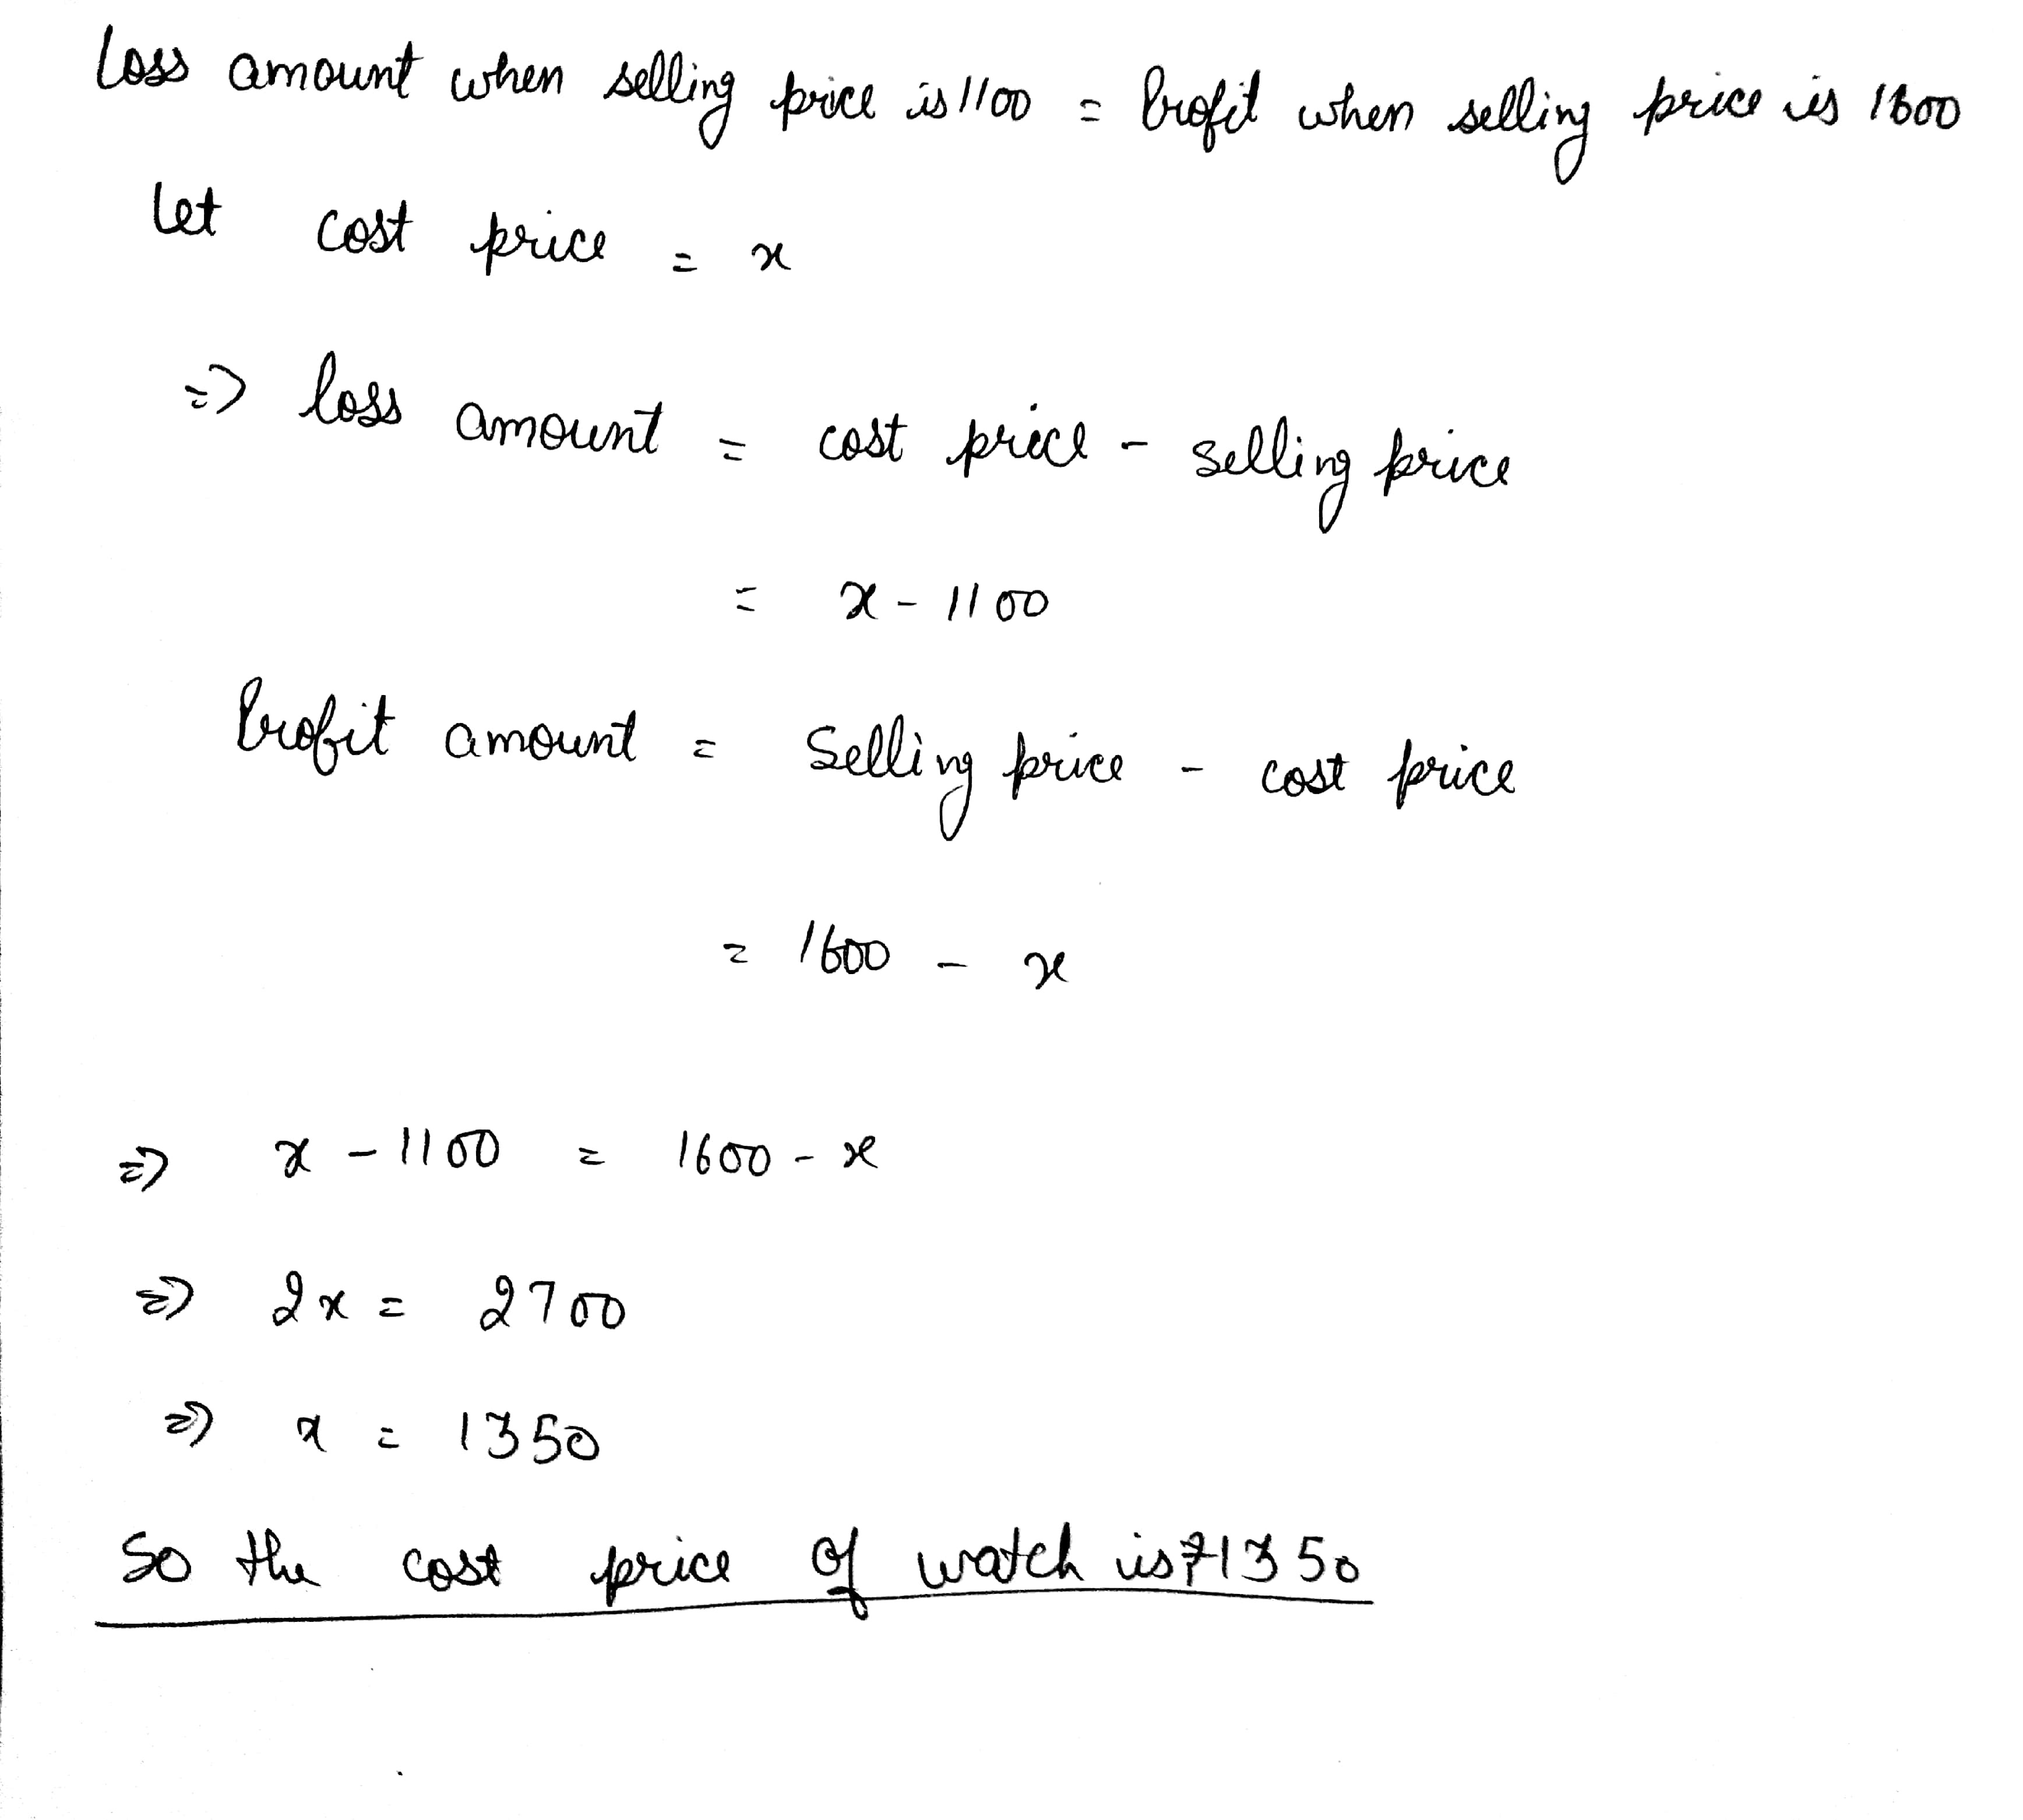 Loss amount when selling price is 1100 = Profit when selling price is 1600
Let cost price = x
=> loss amount = cost price - selling price
= x - 1100
Profit amount = Selling price - cost price
= 1600 - x
=> x - 1100 = 1600 - x
=> 2x = 2700
=> x = 1350
So the cost price of watch is ₹1350